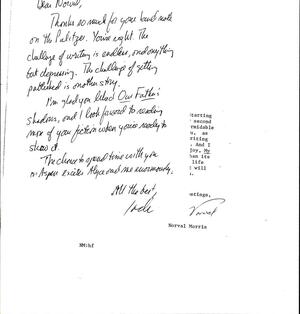 Dear Norval,
Thanks so much for your kind note
on the Pulitzer. You're right. The
challenge of writing is endless, and anything
but depressing. The challenge of getting
published is another story.
I'm glad you liked Our Fathers'
Shadows, and I look forward to reading
more of your fiction when you're ready to
show it.
The chance to spend time with you
in Aspen excites Alyce and me enormously.
All the best,
Jack
tarting
second
rmidable
u, as
riting
. And I
joy, My
han its
life
I will
.
etings,
Norval
Norval Morris
NM:hf